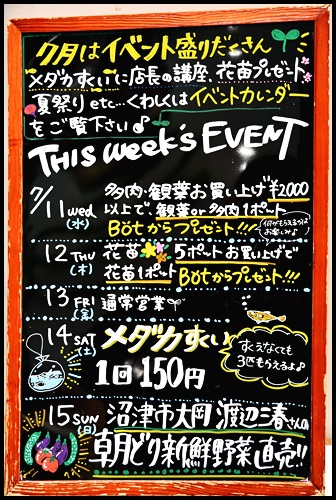 7月はイベント盛りだくさん
メダカすくいに店長の講座、花苗プレゼント、
夏祭り etc...くわしくはイベントカレンダー
をご覧下さい♪
THIS week's EVENT
7/11 wed (水) 多肉・観葉お買い上げ¥2,000
以上で、観葉or多肉1ポート
Botからプレゼント!!!
何がもらえるかはお楽しみ♪
12 THU (木) 花苗 5ポートお買い上げで
花苗1ポート Botからプレゼント!!!
13 FRI (金) 通常営業
14 SAT (土) メダカすくい
1回150円
すくえなくても
3匹もらえるよ♪
15 SUN (日) 沼津市大岡 渡辺三春さんの
朝どり新鮮野菜直売!!